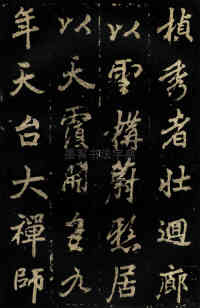 楨秀者壯迴廊
以雲構蔚懸居
以天霞開皇九
年天台大禪師